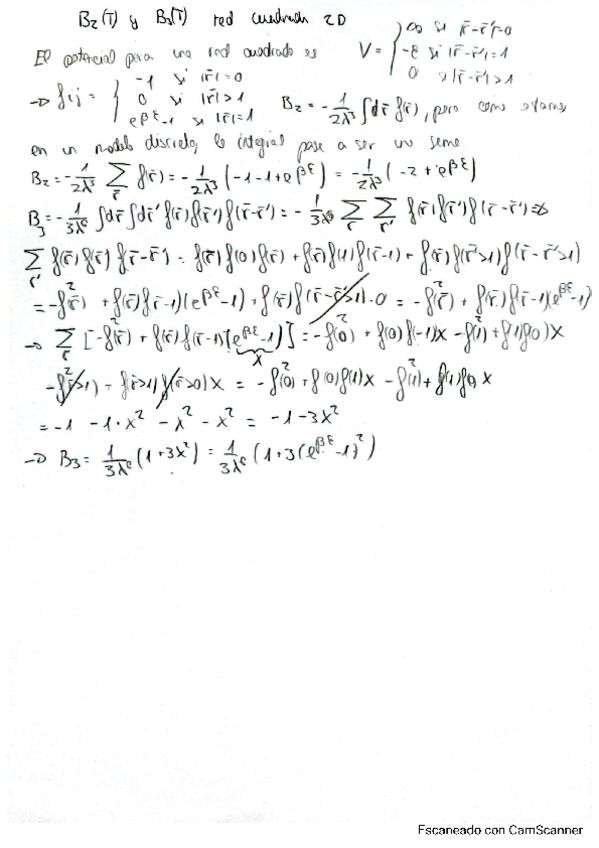 B₂(T) y B₃(T) red cuadrada 2D
El potencial para una red cuadrada es V = { ∞ si |r̄-r̄'|=0
-ε si |r̄-r̄'|=1
0 si |r̄-r̄'|>1
→ fij = { -1 si |r̄|=0
0 si |r̄|>1
e^βε -1 si |r̄|=1
B₂ = -1/2λ³ ∫dr̄ f(r̄), pero como estamos
en un modelo discreto, la integral pasa a ser una suma
B₂ = -1/2λ³ Σ_r̄ f(r̄) = -1/2λ³ (-1-1+e^βε) = -1/2λ³ (-2+e^βε)
B₃ = -1/3λ⁶ ∫dr̄∫dr̄' f(r̄)f(r̄')f(r̄-r̄') = -1/3λ⁶ Σ_r̄ Σ_r̄' f(r̄)f(r̄')f(r̄-r̄') ⇒
Σ_r̄' f(r̄)f(r̄')f(r̄-r̄') = f(r̄)f(0)f(r̄) + f(r̄)f(1)f(r̄-1) + f(r̄)f(r̄'>1)f(r̄-r̄'>1)
= -f²(r̄) + f(r̄)f(r̄-1)(e^βε-1) + f(r̄)f(r̄-r̄'>1)·0 = -f²(r̄) + f(r̄)f(r̄-1)(e^βε-1)
→ Σ_r̄ [-f²(r̄) + f(r̄)f(r̄-1)(e^βε-1)] = -f²(0) + f(0)f(-1)x - f²(1) + f(1)f(0)x
x
-f²(r̄>1) - f(r̄>1)f(r̄>0)x = -f²(0) + f(0)f(1)x - f²(1) + f(1)f(0)x
= -1 -1·x² - x² - x² = -1-3x²
→ B₃ = 1/3λ⁶ (1+3x²) = 1/3λ⁶ (1+3(e^βε-1)²)
Escaneado con CamScanner